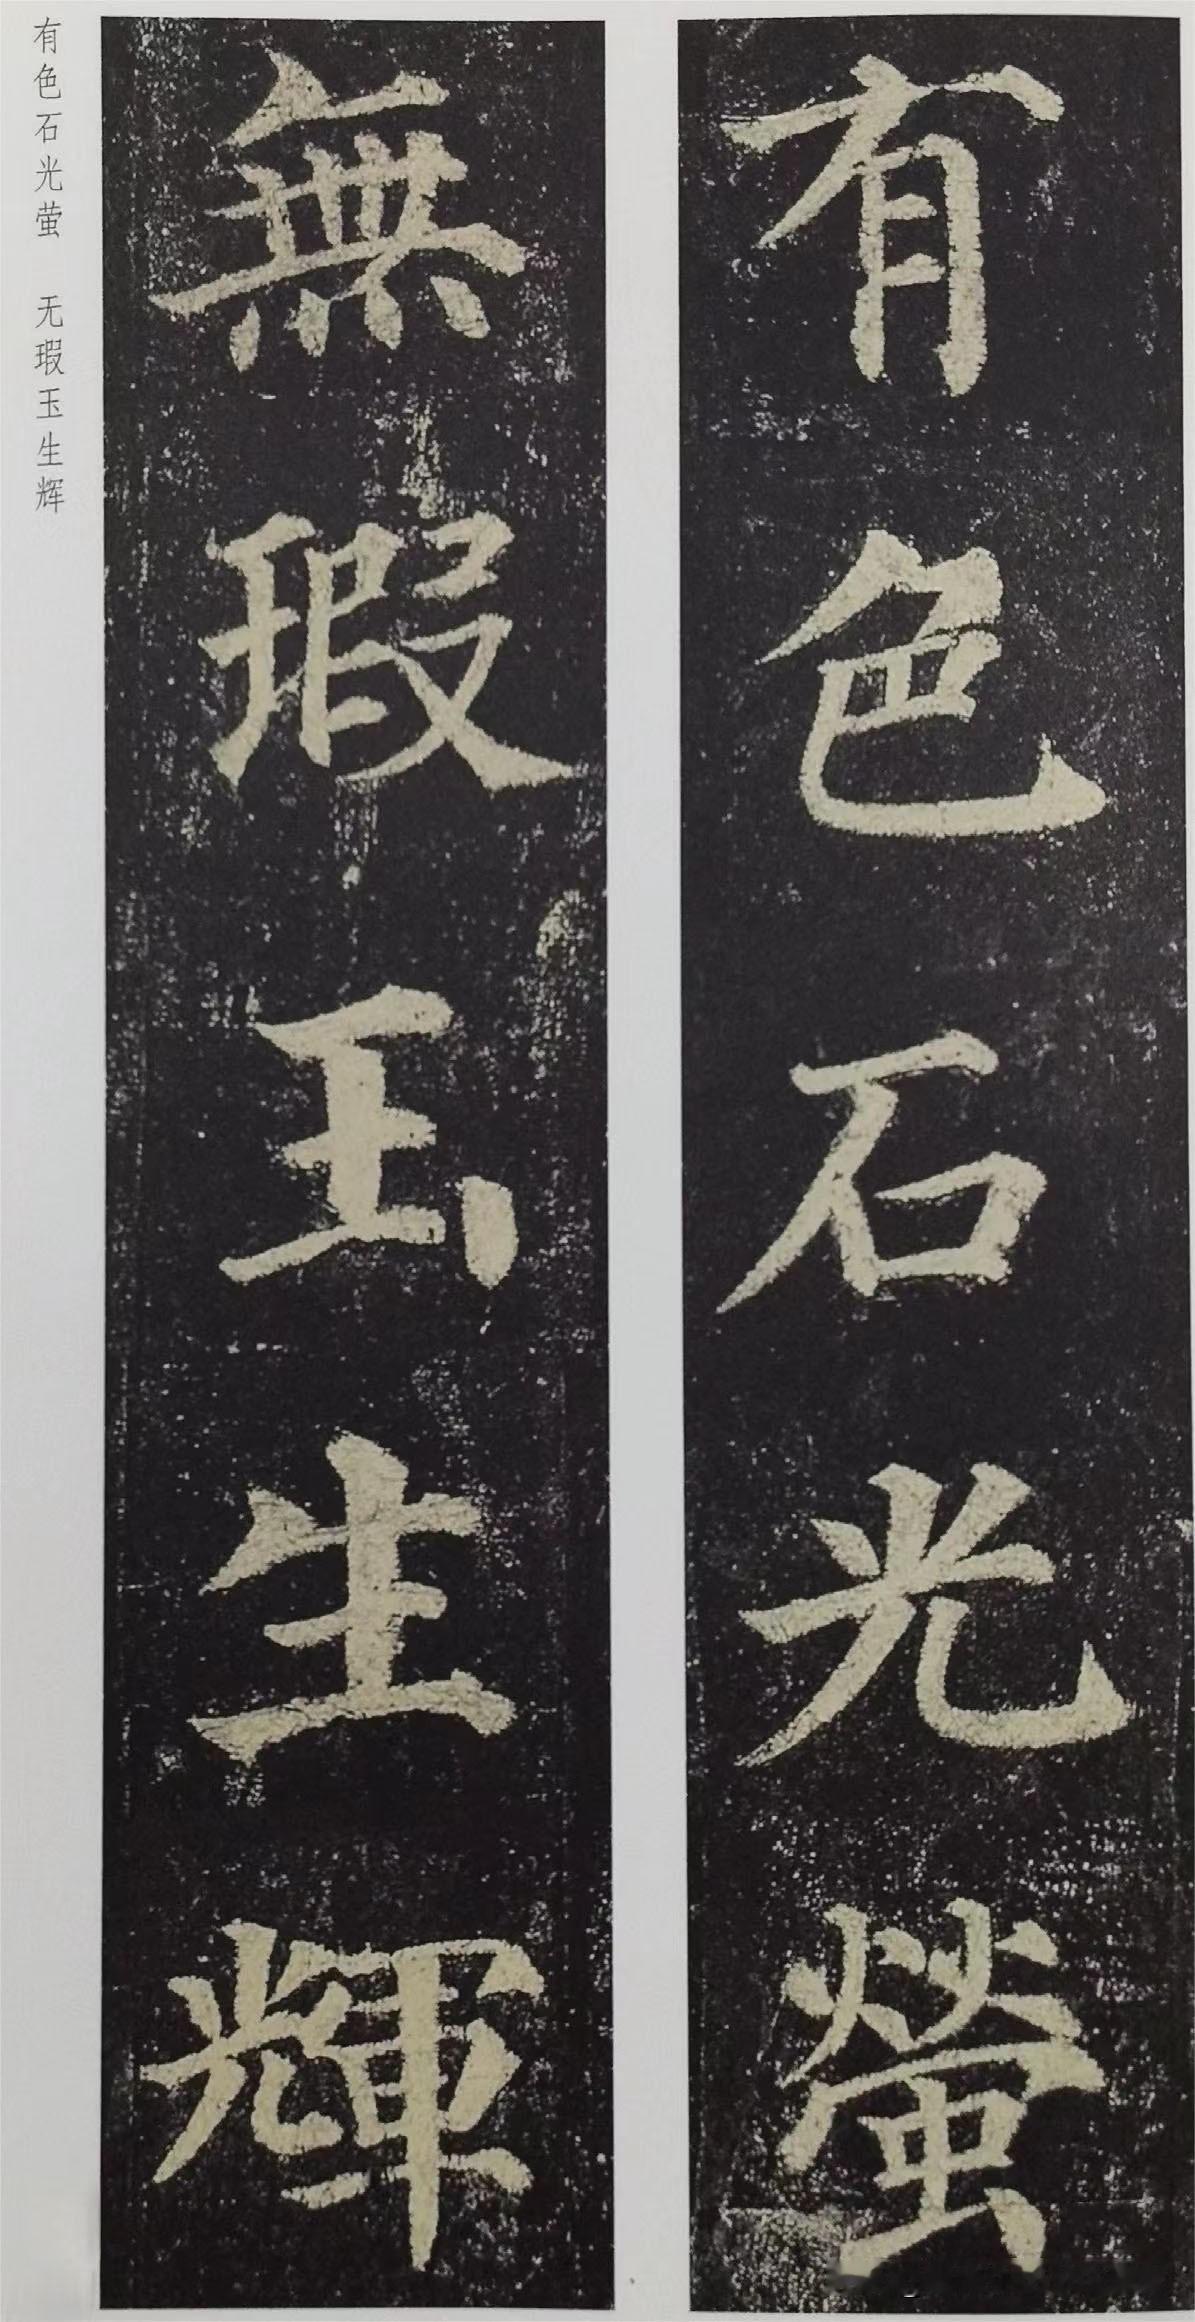 有色石光螢
無瑕玉生輝
有色石光萤 无瑕玉生辉